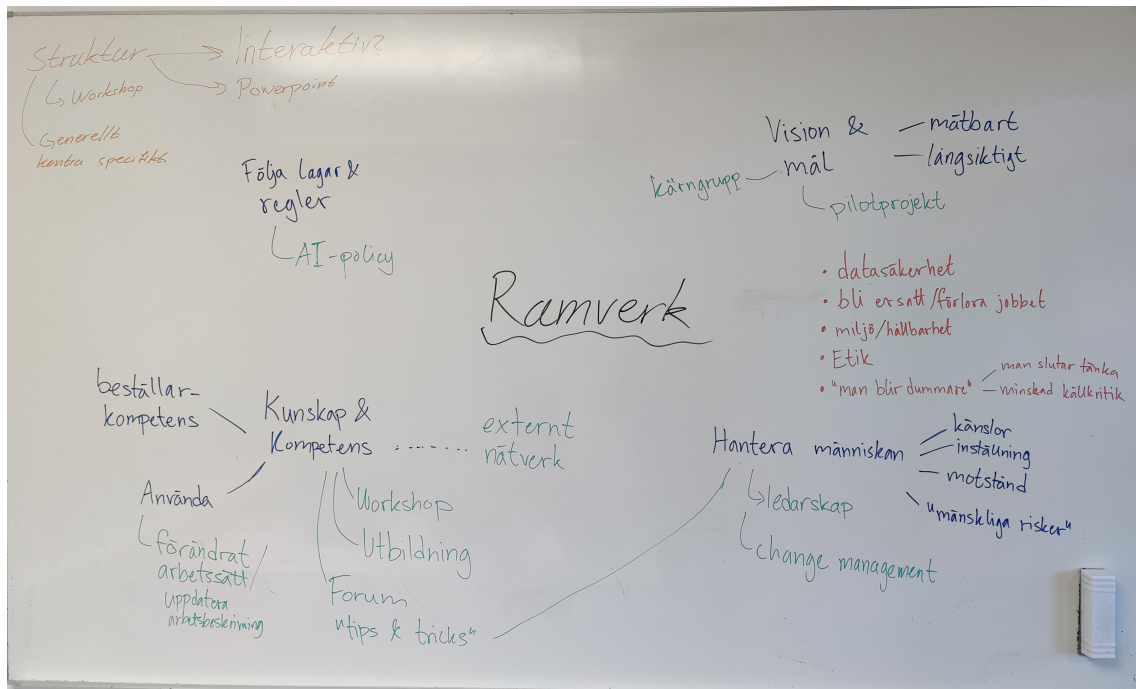 Struktur
Interaktiv?
Workshop
Powerpoint
Generellt
kontra specifikt
Följa lagar &
regler
AI-policy
Vision &
mål
mätbart
långsiktigt
kärngrupp
pilotprojekt
Ramverk
• datasäkerhet
• bli ersatt/förlora jobbet
• miljö/hållbarhet
• Etik
• "man blir dummare"
man slutar tänka
minskad källkritik
beställar-
kompetens
Kunskap &
Kompetens
externt
nätverk
Använda
förändrat
arbetssätt/
uppdatera
arbetsbeskrivning
Workshop
Utbildning
Forum
"tips & tricks"
Hantera människan
känslor
inställning
motstånd
"mänskliga risker"
ledarskap
change management